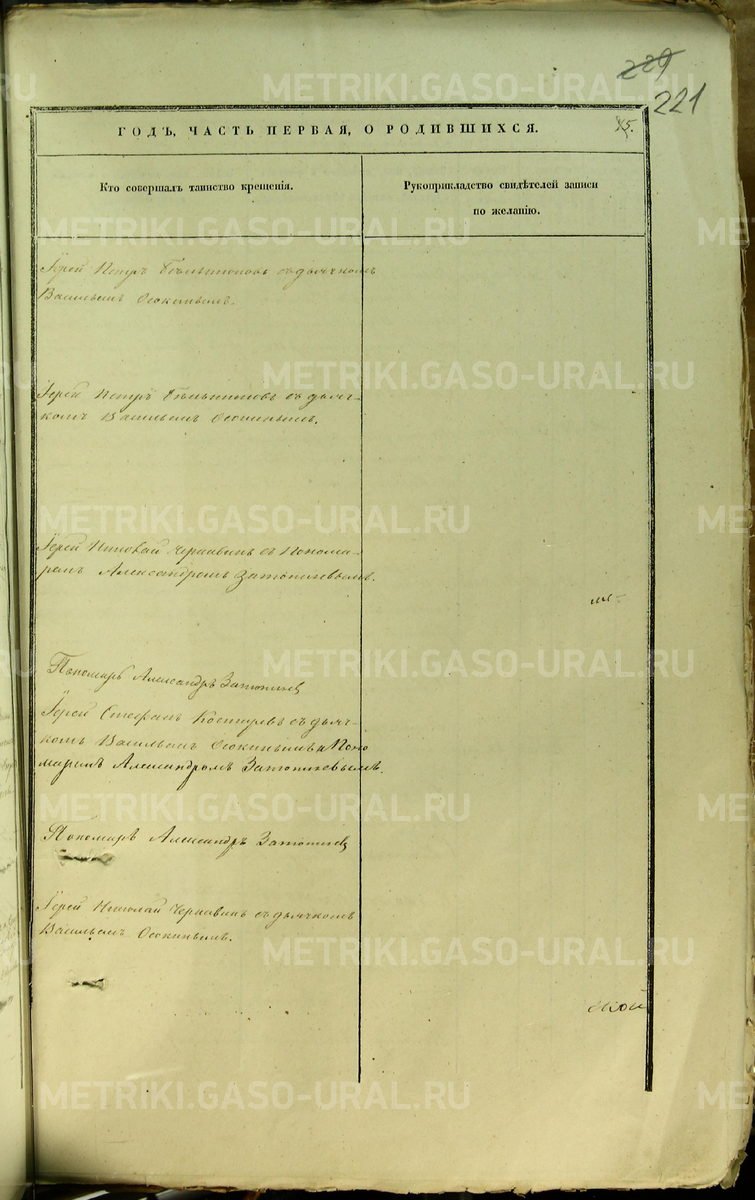 229
221
ГОДЪ, ЧАСТЬ ПЕРВАЯ, О РОДИВШИХСЯ.
Кто совершалъ таинство крещенія.
Рукоприкладство свидѣтелей записи
по желанію.
Іерей Петръ съ дьячкомъ
Васильемъ Осокинымъ.
Іерей Петръ съ дьяч-
комъ Васильемъ Осокинымъ.
Іерей Николай Чернавинъ съ Понома-
ремъ Александромъ Затопляевымъ.
Пономарь Александръ Затопляевъ
Іерей Стефанъ съ дьяч-
комъ Васильемъ Осокинымъ и Поно
маремъ Александромъ Затопляевымъ.
Пономарь Александръ Затопляевъ
Іерей Николай Чернавинъ съ дьячкомъ
Васильемъ Осокинымъ.
METRIKI.GASO-URAL.RU